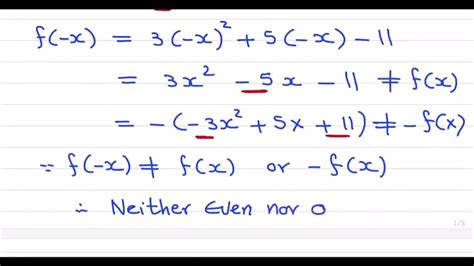 f(-x) = 3(-x)² + 5(-x) - 11
= 3x² - 5x - 11 ≠ f(x)
= -(-3x² + 5x + 11) ≠ -f(x)
∵ f(-x) ≠ f(x) or -f(x)
∴ Neither Even nor O
1/3